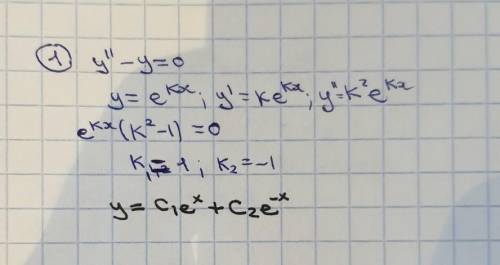 ① y'' - y = 0
y = e^{kx}; y' = ke^{kx}; y'' = k² e^{kx}
e^{kx}(k² - 1) = 0
k₁ = 1; k₂ = -1
y = C₁eˣ + C₂e⁻ˣ